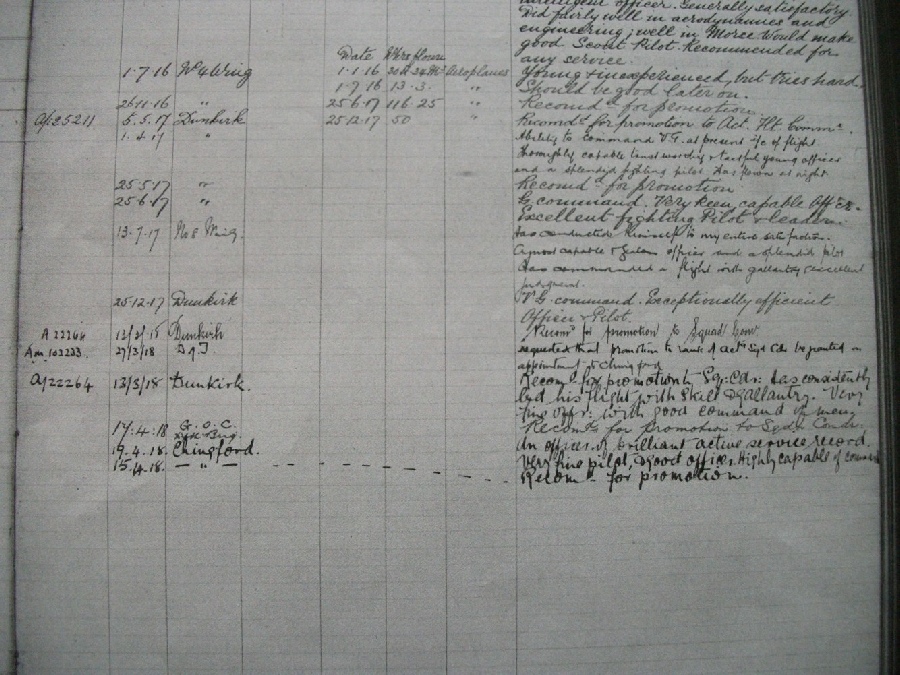 intelligent officer. Generally satisfactory
Did fairly well in aerodynamics and
engineering; well in Morse would make
good Scout Pilot. Recommended for
any service.
Date Hrs flown
1-7-16 No 4 Wing 1-1-16 Aeroplanes Young & inexperienced, but tries hard.
1-7-16 13-3. " Should be good later on.
26.11.16 " 25.6.17 116.25 " Recomd for promotion.
5.5.17 Dunkirk 25.12.17 50 " Recomd for promotion to Act. Flt. Commr.
1.4.17 " Ability to command V.G. at present i/c of flight
thoroughly capable hard working & tactful young officer
and a splendid fighting pilot. Has flown at night
25.5.17 " Recomd for promotion
25.6.17 " G. command. Very keen, capable Officer.
Excellent fighting Pilot & leader.
13-7-17 has conducted himself to my entire satisfaction.
A most capable & zealous officer and a splendid pilot
Has commanded a flight with gallantry & excellent
judgment.
25.12.17 Dunkirk V.G. command. Exceptionally efficient
Officer & Pilot.
A 22264 Dunkirk Recomd for promotion to Squad Comr
27/3/18 requested that promotion to rank of act Sqd Cdr be granted on
appointment to Chingford
22264 13/3/18 Dunkirk. Recomd for promotion to Sq: Cdr: has consistently
led his flight with skill & gallantry. Very
fine offr: with good command of men
17.4.18 G.O.C. Recomd for promotion to Sqdn Comdr.
19.4.18. Chingford. An officer of brilliant active service record.
Very fine pilot, & good officer. Highly capable of
15.4.18. — " — Recomd for promotion.